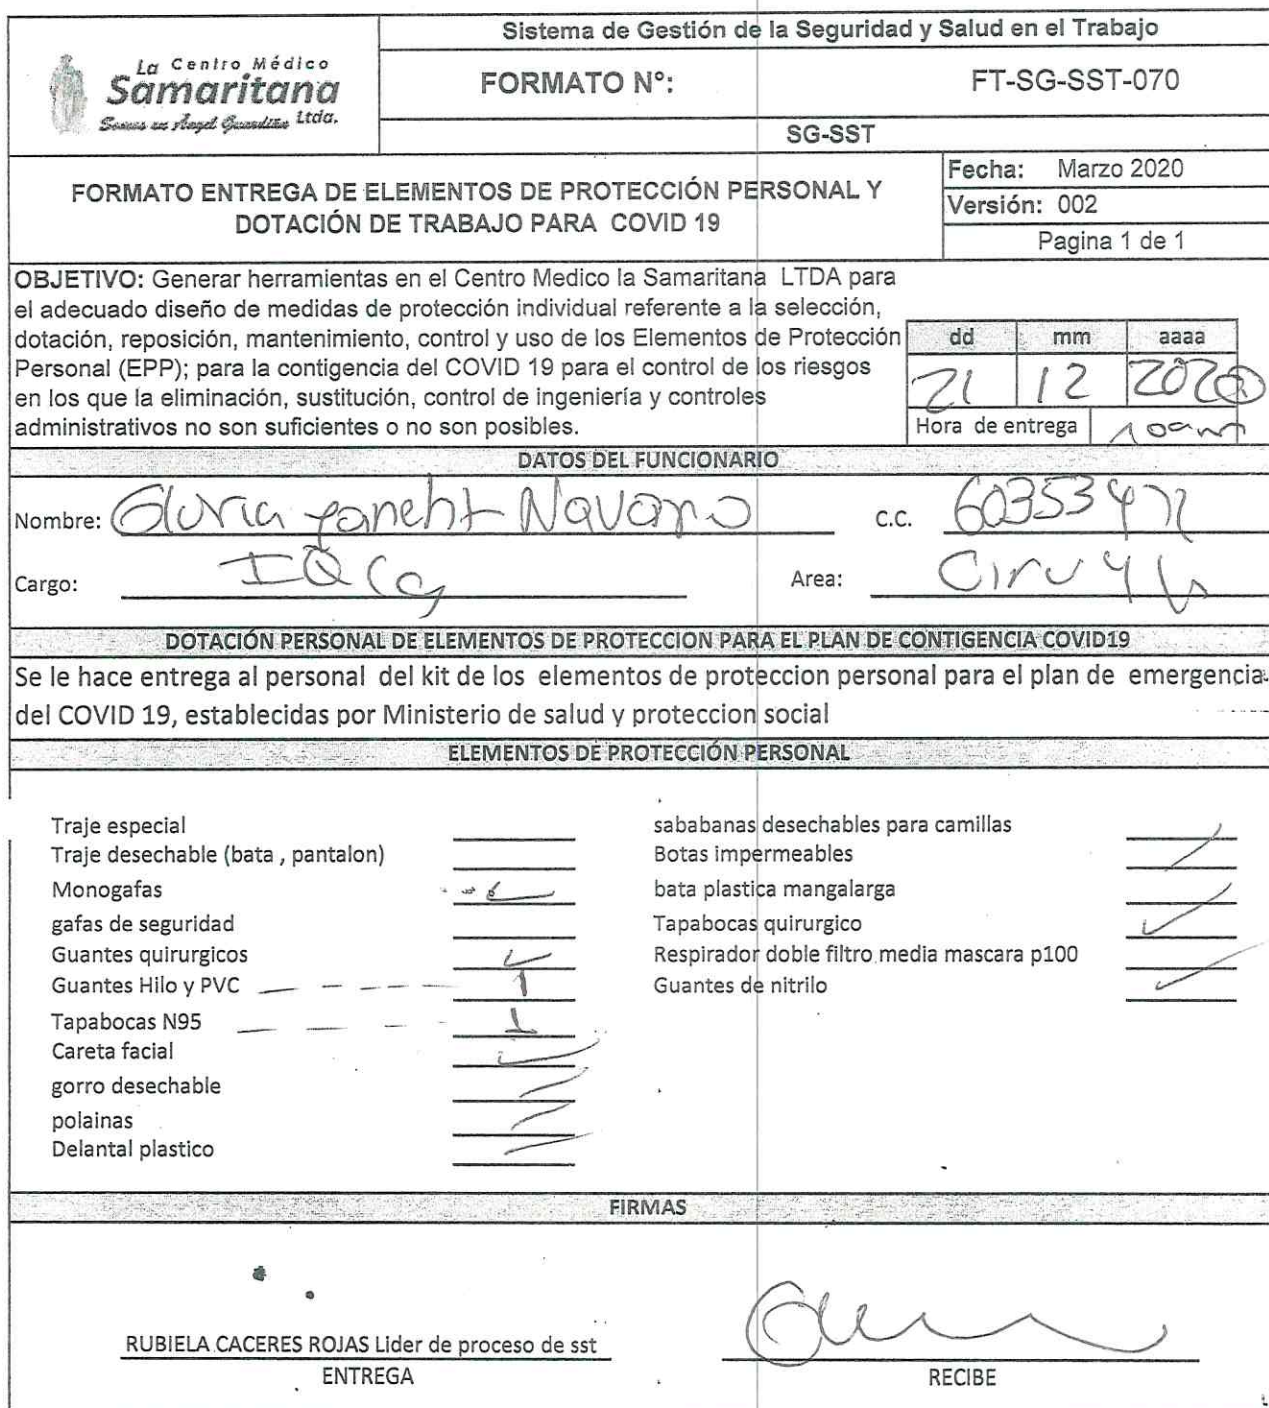 La Centro Médico
Samaritana
Somos un Ángel Guardián Ltda.
Sistema de Gestión de la Seguridad y Salud en el Trabajo
FORMATO N°: FT-SG-SST-070
SG-SST
FORMATO ENTREGA DE ELEMENTOS DE PROTECCIÓN PERSONAL Y
DOTACIÓN DE TRABAJO PARA COVID 19
Fecha: Marzo 2020
Versión: 002
Pagina 1 de 1
OBJETIVO: Generar herramientas en el Centro Medico la Samaritana LTDA para
el adecuado diseño de medidas de protección individual referente a la selección,
dotación, reposición, mantenimiento, control y uso de los Elementos de Protección
Personal (EPP); para la contigencia del COVID 19 para el control de los riesgos
en los que la eliminación, sustitución, control de ingeniería y controles
administrativos no son suficientes o no son posibles.
dd mm aaaa
21 12 2020
Hora de entrega 10am
DATOS DEL FUNCIONARIO
Nombre: Gloria Yaneht Navarro C.C. 60353471
Cargo: Area: Cirugia
DOTACIÓN PERSONAL DE ELEMENTOS DE PROTECCION PARA EL PLAN DE CONTIGENCIA COVID19
Se le hace entrega al personal del kit de los elementos de proteccion personal para el plan de emergencia
del COVID 19, establecidas por Ministerio de salud y proteccion social
ELEMENTOS DE PROTECCIÓN PERSONAL
Traje especial
Traje desechable (bata , pantalon)
Monogafas
gafas de seguridad
Guantes quirurgicos
Guantes Hilo y PVC 1
Tapabocas N95 1
Careta facial
gorro desechable
polainas
Delantal plastico
sababanas desechables para camillas
Botas impermeables
bata plastica mangalarga
Tapabocas quirurgico
Respirador doble filtro media mascara p100
Guantes de nitrilo
FIRMAS
RUBIELA CACERES ROJAS Lider de proceso de sst
ENTREGA
RECIBE